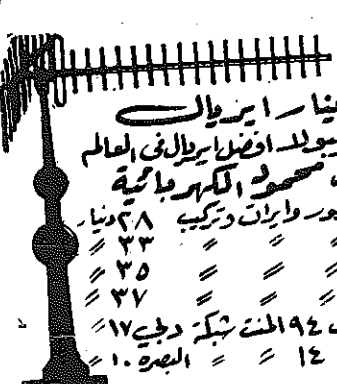 ايريال
افضل ايريال في العالم
محمود الكهربائية
وايران وتركيب ٢٨ دينار
〃 〃 ٣٣ 〃
〃 〃 ٣٥ 〃
〃 〃 ٣٧ 〃
٩٤ المنت شبكة دبي ١٧ 〃
١٤ 〃 〃 البصره ١٠ 〃